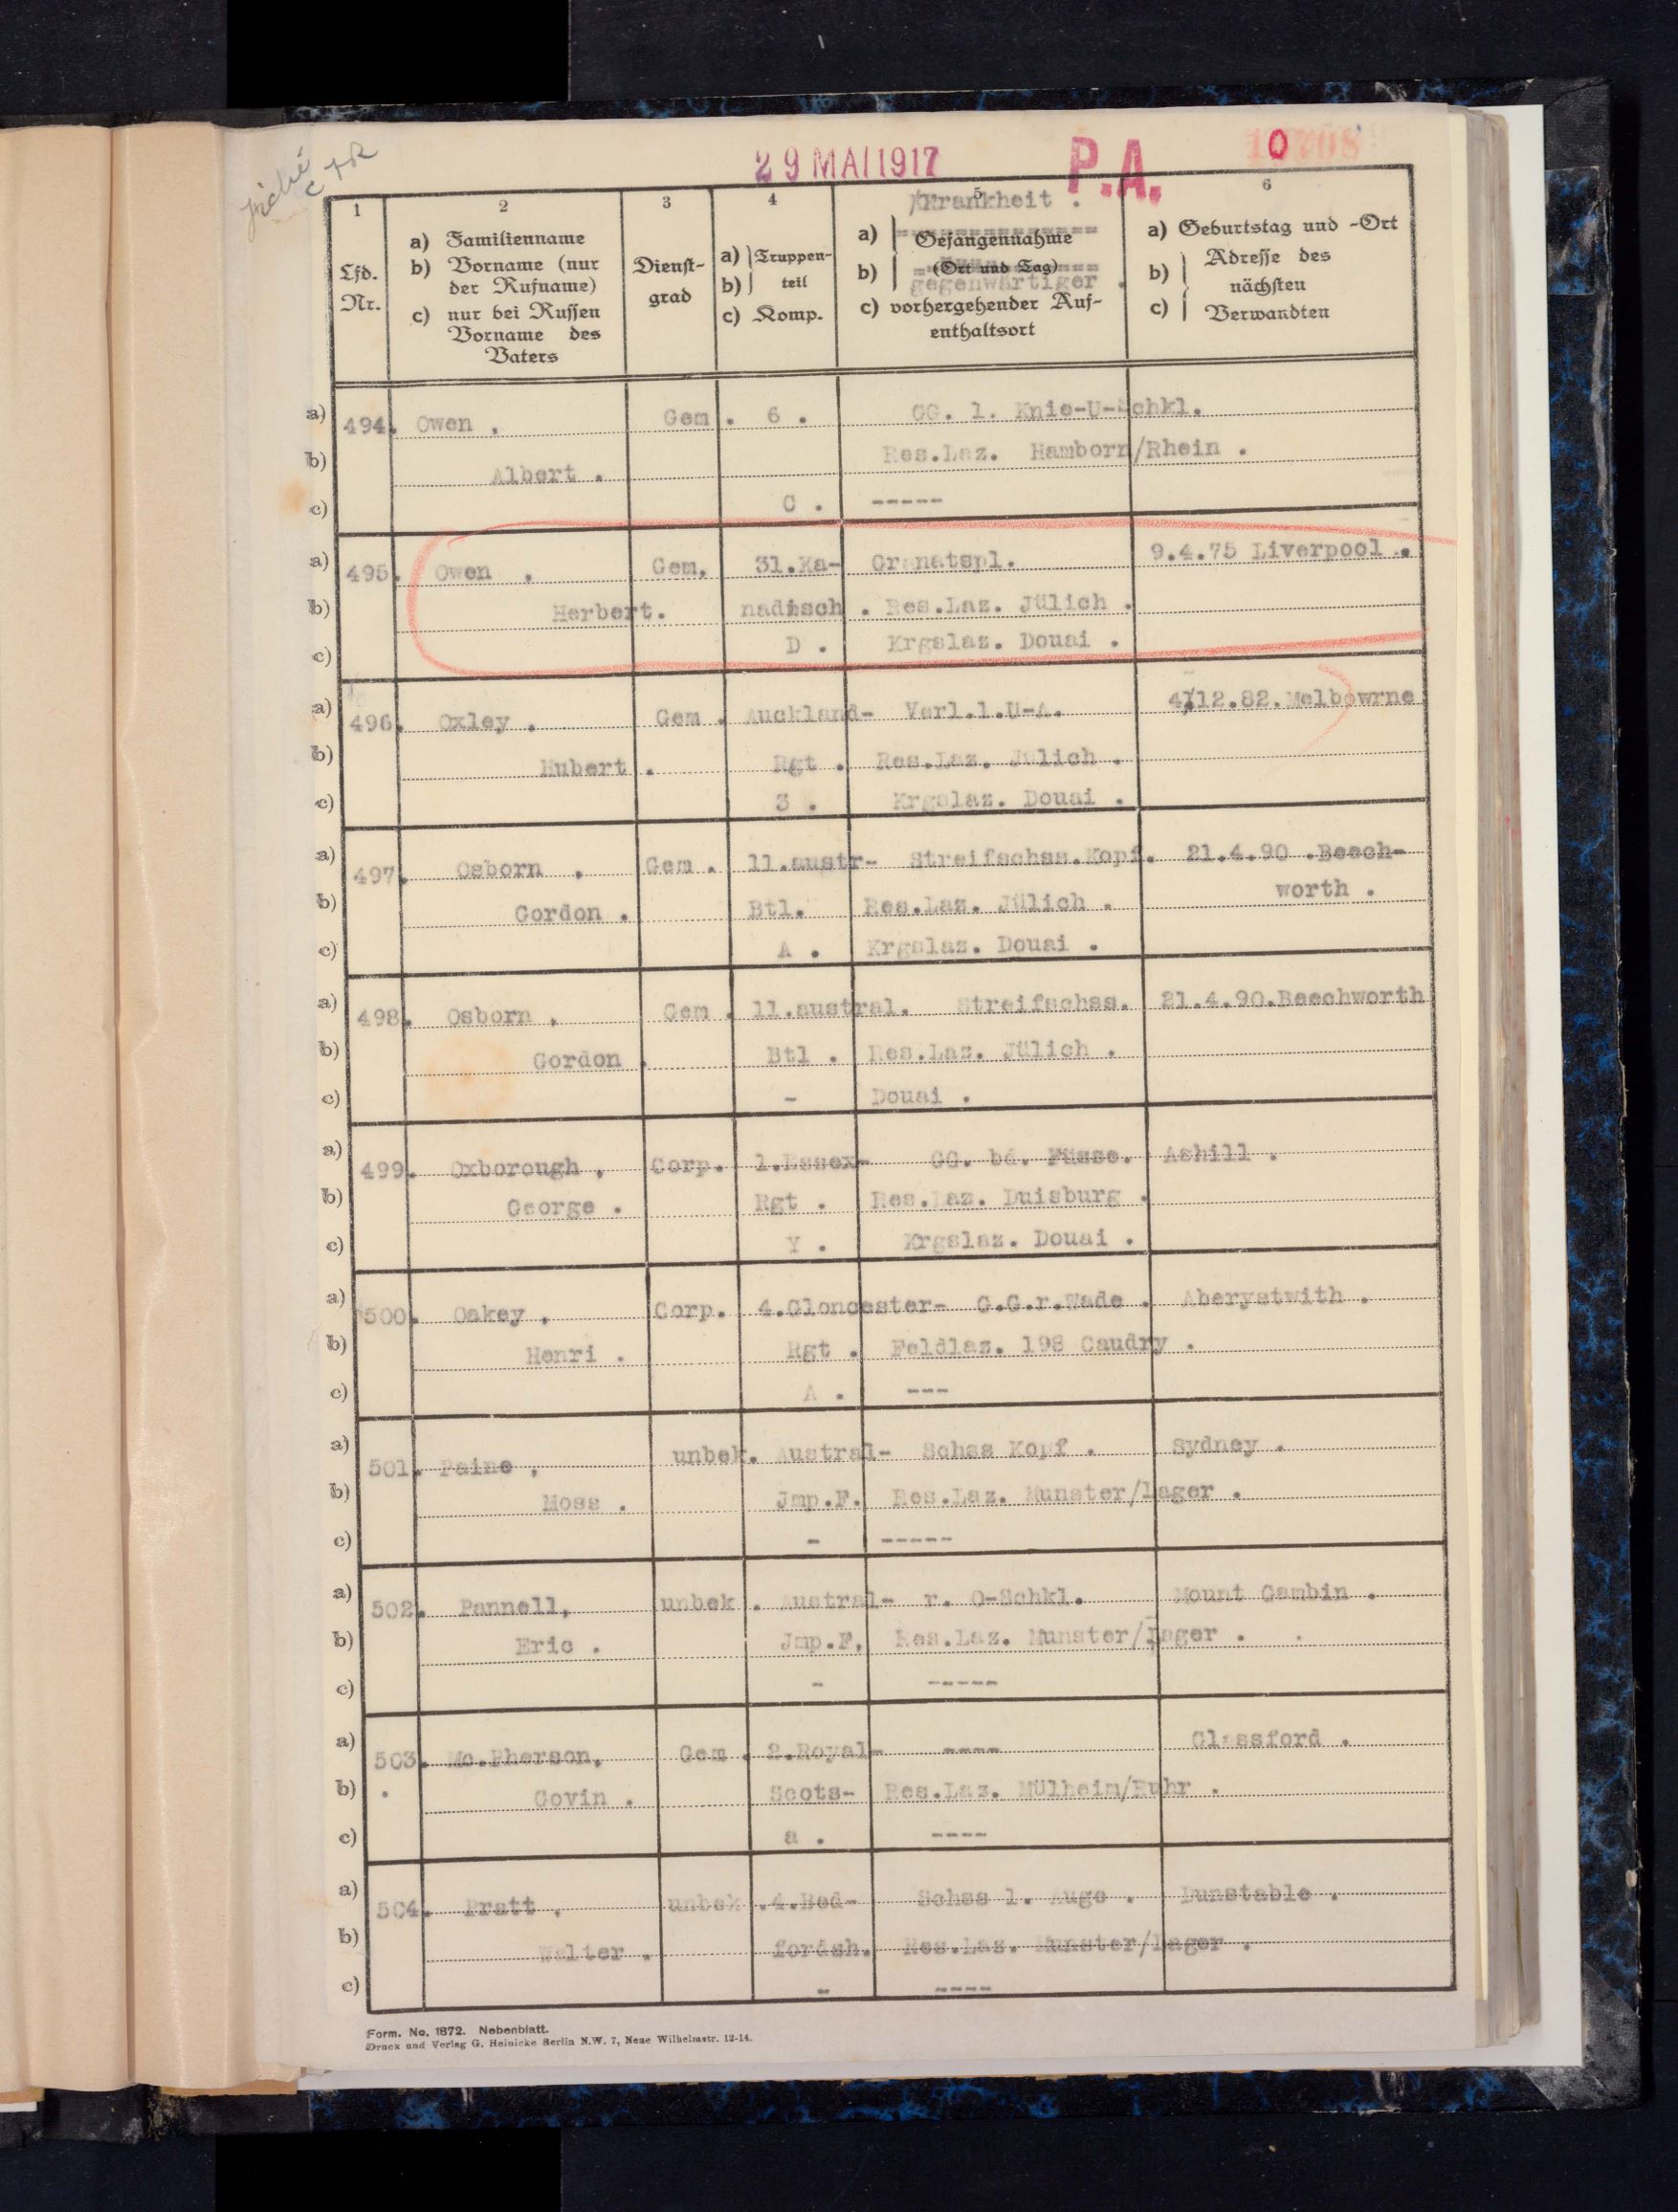 29 MAI 1917 P.A. 10708
1 2 3 4 5 6
Krankheit .
Lfd. Nr.
a) Familienname
b) Vorname (nur der Rufname)
c) nur bei Russen Vorname des Vaters
Dienst-
grad
a) Truppen-
b) teil
c) Komp.
a) Gefangennahme
b) (Ort und Tag)
gegenwärtiger .
c) vorhergehender Auf-
enthaltsort
a) Geburtstag und -Ort
b) Adresse des nächsten
c) Verwandten
a) 494. Owen . Gem . 6 . GG. l. Knie-U-Schkl.
b) Albert . Res.Laz. Hamborn/Rhein .
c) C . -----
a) 495. Owen . Gem. 31.Ka- Granatspl. 9.4.75 Liverpool .
b) Herbert. nadisch . Res.Laz. Jülich .
c) D . Krgslaz. Douai .
a) 496. Oxley . Gem . Auckland- Verl.l.U-A. 4.12.82.Melbowrne
b) Hubert . Rgt . Res.Laz. Jülich .
c) 3 . Krgslaz. Douai .
a) 497. Osborn . Gem . 11.austr- Streifschss.Kopf. 21.4.90 .Beech-
b) Gordon . Btl. Res.Laz. Jülich . worth .
c) A . Krgslaz. Douai .
a) 498. Osborn . Gem . 11.austral. Streifschss. 21.4.90.Beechworth
b) Gordon . Btl . Res.Laz. Jülich .
c) - Douai .
a) 499. Oxborough . Corp. 1.Essex- GG. bd. Füsse. Ashill .
b) George . Rgt . Res.Laz. Duisburg .
c) Y . Krgslaz. Douai .
a) 500. Oakey . Corp. 4.Gloncester- G.G.r.Wade . Aberystwith .
b) Henri . Rgt . Feldlaz. 198 Caudry .
c) A . ---
a) 501. Paine , unbek. Austral- Schss Kopf . Sydney .
b) Moss . Jmp.F. Res.Laz. Munster/Lager .
c) - -----
a) 502. Pannell, unbek . Austral- r. O-Schkl. Mount Gambin .
b) Eric . Jmp.F. Res.Laz. Munster/Lager .
c) - -----
a) 503. Mc.Pherson, Gem . 2.Royal- ---- Glassford .
b) Govin . Scots- Res.Laz. Mülheim/Ruhr .
c) a . ----
a) 504. Pratt . unbek .4.Bed- Schss l. Auge . Dunstable .
b) Walter . fordsh. Res.Laz. Munster/Lager .
c) - ----
Form. No. 1872. Nebenblatt.
Druck und Verlag G. Heinicke Berlin N.W. 7, Neue Wilhelmstr. 12-14.